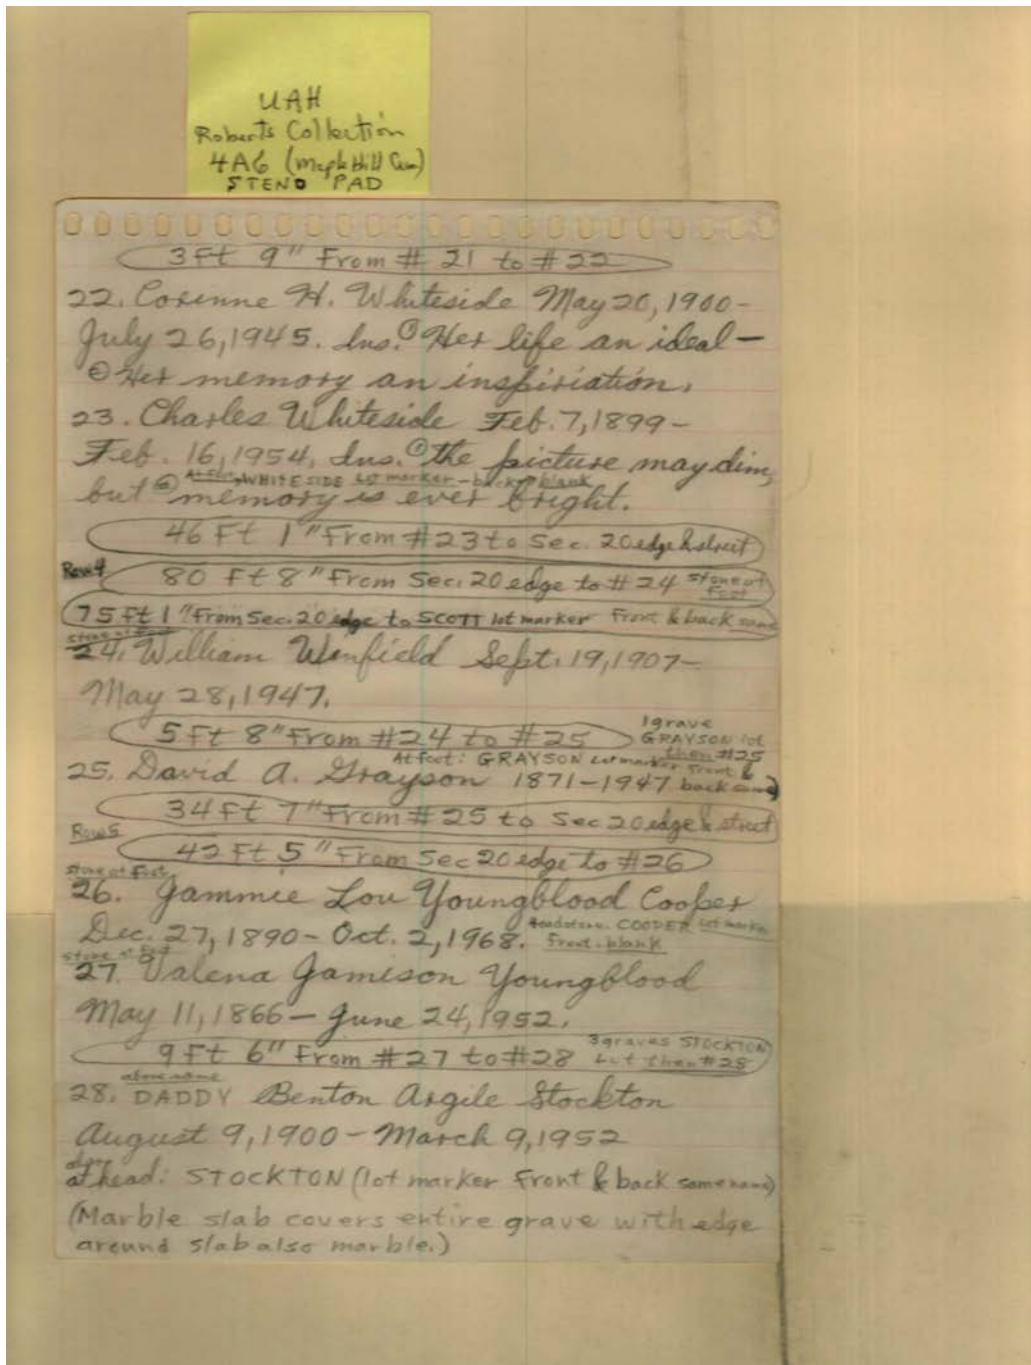 UAH
Roberts Collection
4A6 (Maple Hill Cem)
STENO PAD
3 Ft 9" From # 21 to # 22
22. Corinne H. Whiteside May 20, 1900-
July 26, 1945. Ins. ① Her life an ideal—
② Her memory an inspiriation.
23. Charles Whiteside Feb. 7, 1899-
Feb. 16, 1954, Ins. ① the picture may dim,
At foot, WHITESIDE Lot marker - back blank
but ② memory is ever bright.
46 Ft 1" From #23 to Sec. 20 edge & street
Row 4
80 Ft 8" From Sec. 20 edge to #24 stone at foot
75 Ft 1" From Sec. 20 edge to SCOTT lot marker Front & back same
stone at foot
24. William Winfield Sept. 19, 1907-
May 28, 1947.
5 Ft 8" From #24 to #25
1 grave
GRAYSON lot
then #25
At foot: GRAYSON Lot marker Front &
25. David A. Grayson 1871-1947 back same)
34 Ft 7" From #25 to Sec 20 edge & street
Row 5
42 Ft 5" From Sec 20 edge to #26
stone at Foot
26. Jammie Lou Youngblood Cooper
Headstone. COOPER Lot marker
Dec. 27, 1890- Oct. 2, 1968. Front-blank
stone at foot
27. Valena Jamison Youngblood
May 11, 1866- June 24, 1952.
9 Ft 6" From #27 to #28 3 graves STOCKTON
Lot then #28
above name
28. DADDY Benton Argile Stockton
August 9, 1900- March 9, 1952
at head: STOCKTON (lot marker Front & back same name)
(Marble slab covers entire grave with edge
around slab also marble.)